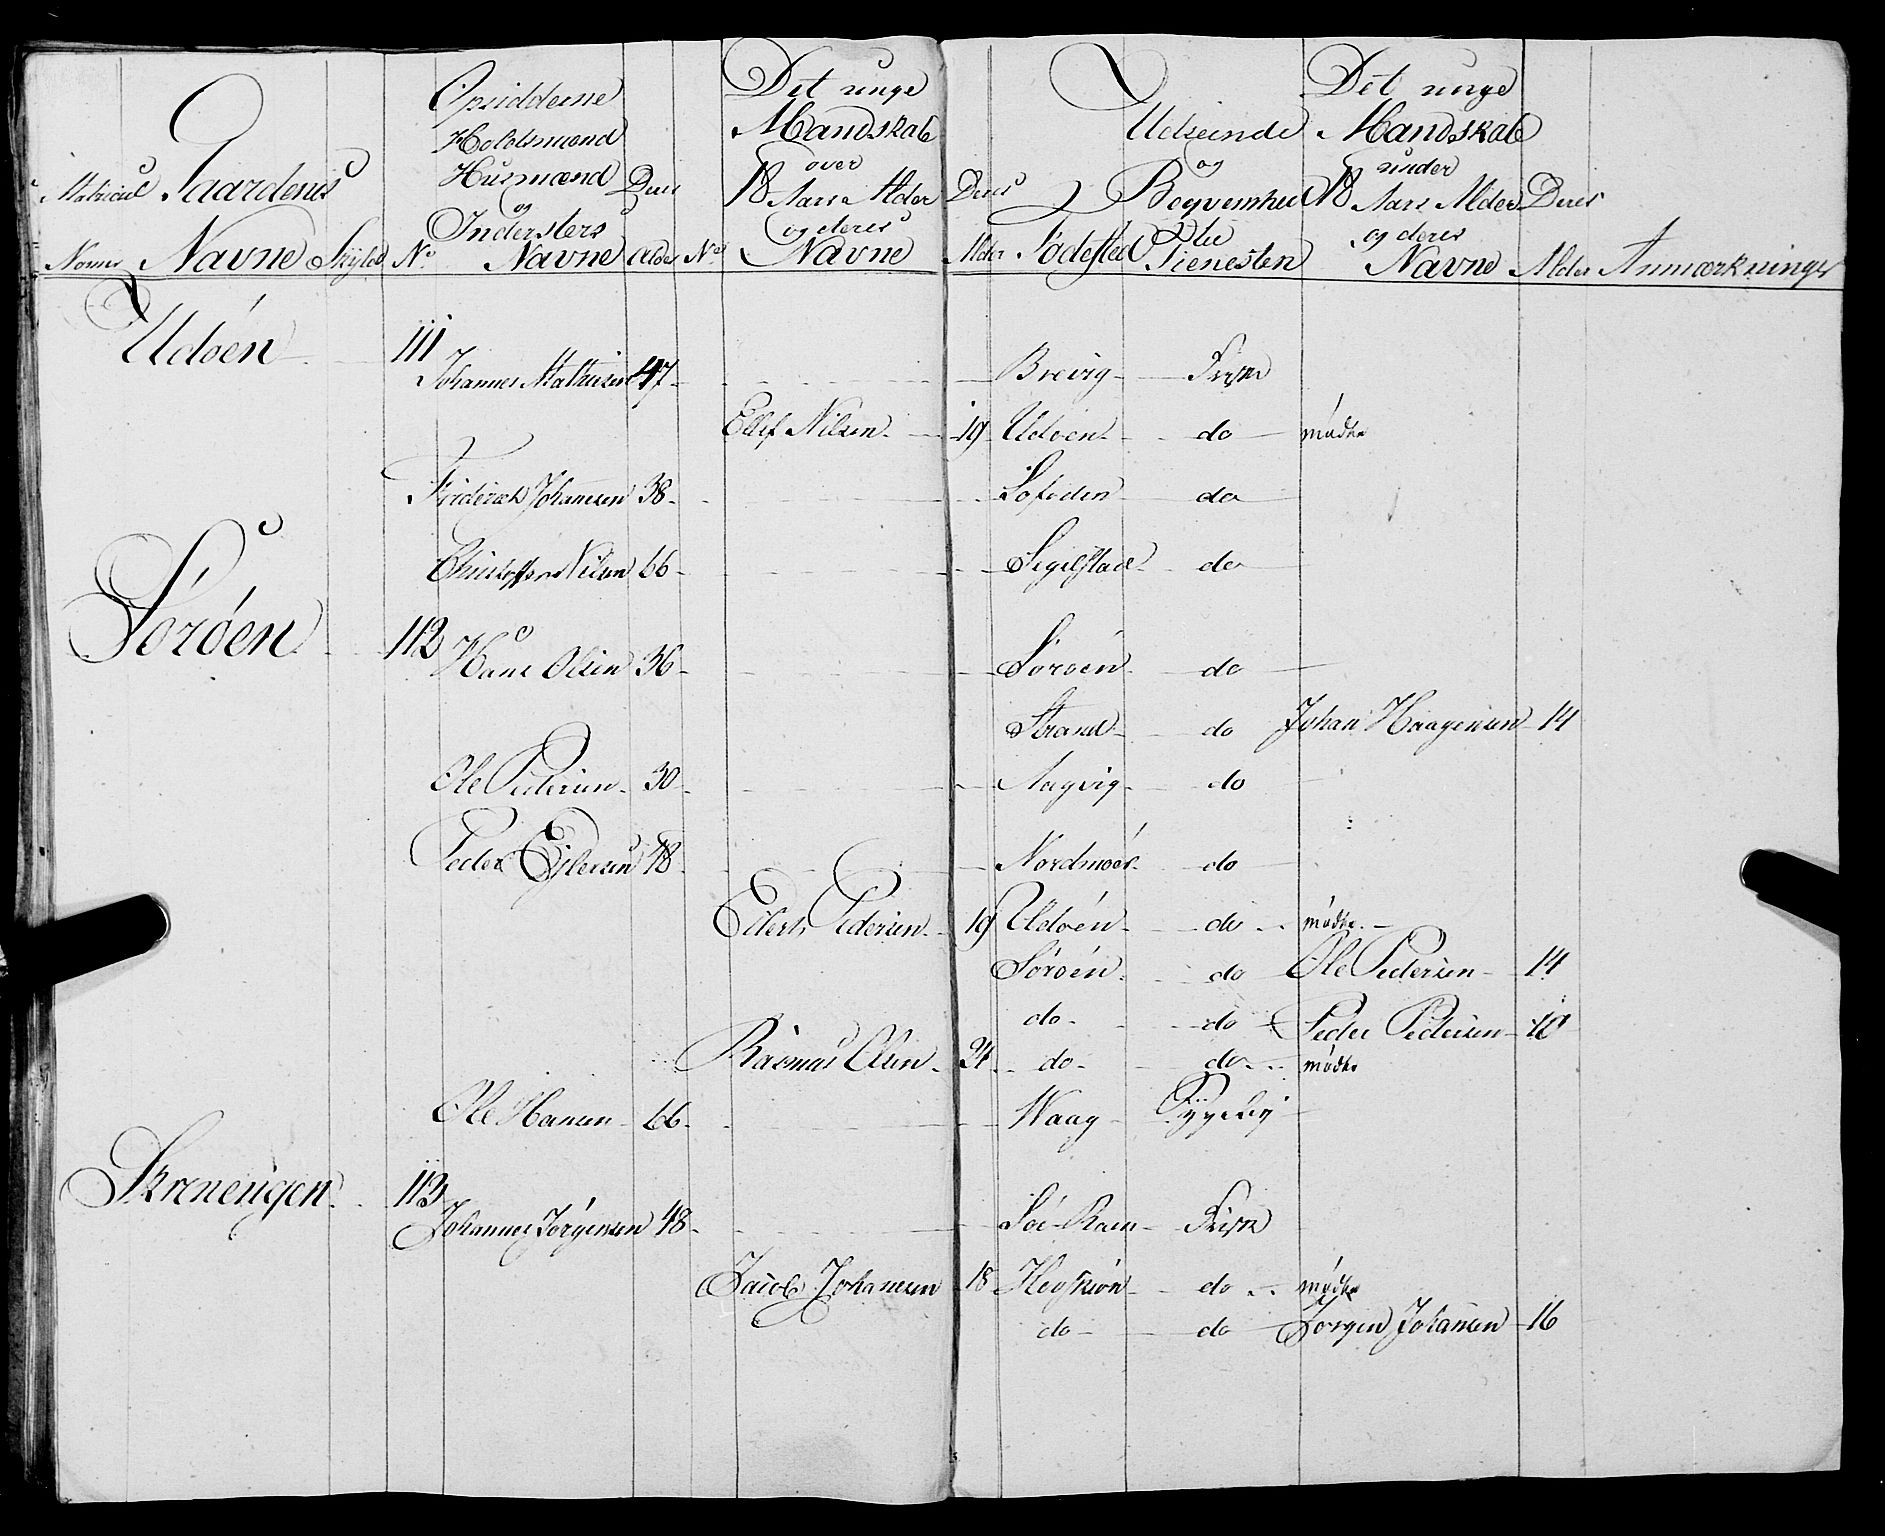 Matricul Gaardenes
Nomer Navne Skyld
No
Opsidderne
Holdsmænd
Husmænd
og
Indersters
Navne
Deres
Alder
No
Det unge
Mandskab
over
18 Aars Alder
og deres
Navne
Deres
Alder
Fødested
Udseende
og
Beqvemhed
til
Tienesten
Det unge
Mandskab
under
18 Aars Alder
og deres
Navne
Deres
Alder
Anmærkninger
Udøen 111
Johannes Mathiesen 47 - Brevig - Frisk
Ellef Nilsen - 19 Udøen - do - mødte
Friderich Johansen 38 - Lofoden - do
Christoffer Nilsen 66 - Segelstad - do
Sørøen 112
Hans Olsen 36 - Sørøen - do
Strand - do Johan Haagensen - 14
Ole Pedersen - 30 - Aagvig - do
Peder Ejlersen 48 - Nordmøer - do
Eilert Pedersen - 19 Udøen - do - mødte -
Sørøen - do Ole Pedersen - 14
do - do Peder Pedersen - 10
Rasmus Olsen - 24 - do - do - mødte
Ole Hansen - 66 - Waag - Sygelig
113
Johannes Jørgensen 48 - Frisk
Jacob Johannesen 18 - do - mødte
do - do Jørgen Johansen - 16